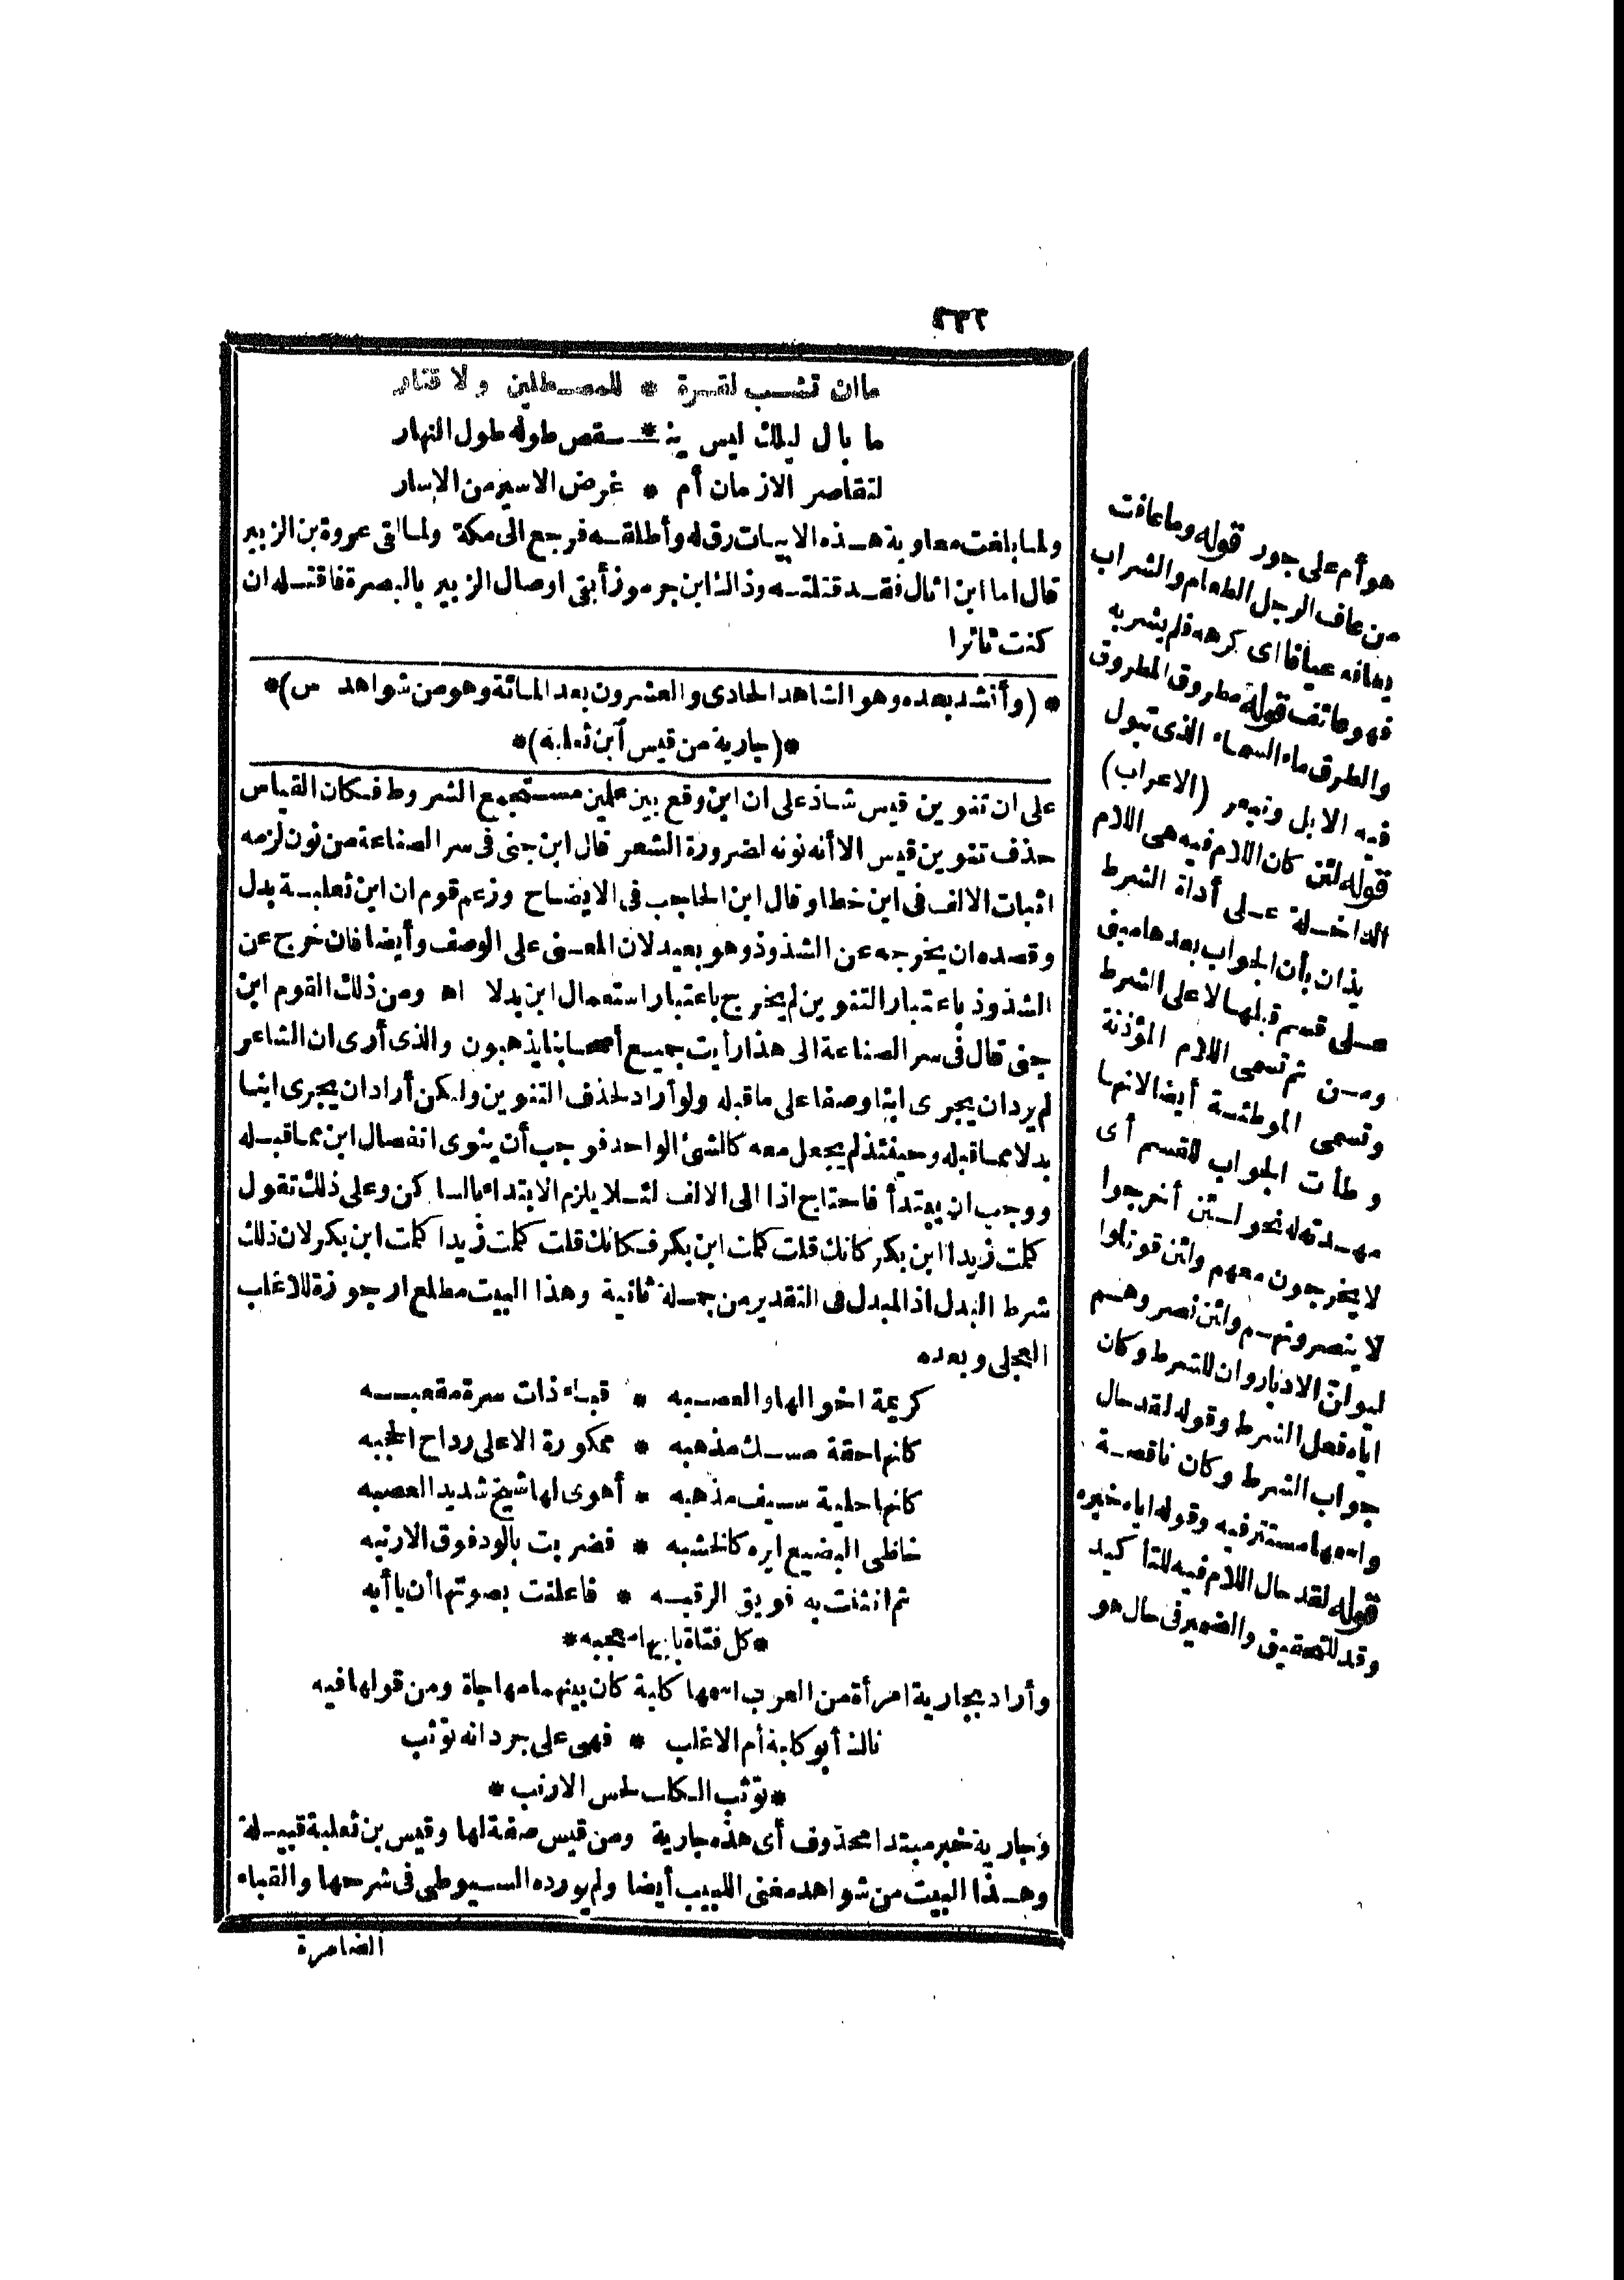 ٣٣٢
ما ان تشب لقرة * للمصطلين ولا قتار
ما بال ليلك ليس ينـ * ـقص طوله طول النهار
لتقاصر الازمان أم * غرض الاسير من الاسار
ولما بلغت معاوية هذه الابيات رق له وأطلقه فرجع الى مكة ولما لقى عروة بن الزبير
قال اما ابن اثال فقد قتلته وذاك ابن جرموز أبقى اوصال الزبير بالبصرة فاقتله ان
كنت ثائرا
* (وأنشد بعده وهو الشاهد الحادى والعشرون بعد المائة وهو من شواهد س) *
* (جارية من قيس ابن ثعلبه) *
على ان تنوين قيس شاذ على ان ابن وقع بين علمين مستجمع الشروط فكان القياس
حذف تنوين قيس الا أنه نونه لضرورة الشعر قال ابن جنى فى سر الصناعة من نون لزمه
اثبات الالف فى ابن خطا وقال ابن الحاجب فى الايضاح وزعم قوم ان ابن ثعلبة بدل
وقصده ان يخرجه عن الشذوذ وهو بعيد لان المعنى على الوصف وأيضا فان خرج عن
الشذوذ باعتبار التنوين لم يخرج باعتبار استعمال ابن بدلا اه ومن ذلك القوم ابن
جنى قال فى سر الصناعة الى هذا رأيت جميع أصحابنا يذهبون والذى أرى ان الشاعر
لم يرد ان يجرى ابنا وصفا على ما قبله ولو أراد لحذف التنوين ولكن أراد ان يجرى ابنا
بدلا مما قبله وحينئذ لم يجعل معه كالشئ الواحد فوجب أن ينوى انفصال ابن مما قبله
ووجب ان يبتدأ فاحتاج اذا الى الالف لئلا يلزم الابتداء بالساكن وعلى ذلك تقول
كلمت زيدا ابن بكر كانك قلت كلمت ابن بكر فكانك قلت كلمت زيدا كلمت ابن بكر لان ذلك
شرط البدل اذ المبدل فى التقدير من جملة ثانية وهذا البيت مطلع ارجوزة للاغلب
العجلى وبعده
كريمة اخوالها والعصبه * قباء ذات سرة مقعبه
كانها حقة مسك مذهبه * ممكورة الاعلى رداح الحجبه
كانها حلية سيف مذهبه * أهوى لها شيخ شديد العصبه
خاظى البضيع ايره كالخشبه * فضربت بالود فوق الارنبه
ثم انثنت به فويق الرقبه * فاعلنت بصوتها أن يا أبه
* كل فتاة بابيها معجبه *
وأراد بجارية امرأة من العرب اسمها كلبة كان بينهما مهاجاة ومن قولها فيه
ناك أبو كلبة أم الاغلب * فهى على جردانه توثب
* توثب الكلب لحس الارنب *
وجارية خبر مبتدا محذوف أى هذه جارية ومن قيس صفة لها وقيس بن ثعلبة قبيلة
وهذا البيت من شواهد مغنى اللبيب أيضا ولم يورده السيوطى فى شرحها والقباء
الضامرة
هو أم على جور قوله وما عافت
من عاف الرجل الطعام والشراب
يعافه عيافا اى كرهه فلم يشربه
فهو عائف قوله مطروق المطروق
والطرق ماء السماء الذى تبول
فيه الابل وتبعر (الاعراب)
قوله لئن كان اللام فيه هى اللام
الداخلة على أداة الشرط
يذان بأن الجواب بعدها مبنى
على قسم قبلها لا على الشرط
ومن ثم تسمى اللام المؤذنة
وتسمى الموطئة أيضا لانها
وطأت الجواب للقسم أى
مهدته له نحو لئن أخرجوا
لا يخرجون معهم ولئن قوتلوا
لا ينصرونهم ولئن نصروهم
ليولن الادبار وان للشرط وكان
اياه فعل الشرط وقوله لقد حال
جواب الشرط وكان ناقصة
واسمها مستتر فيه وقوله اياه خبره
قوله لقد حال اللام فيه للتأكيد
وقد للتحقيق والضمير فى حال هو